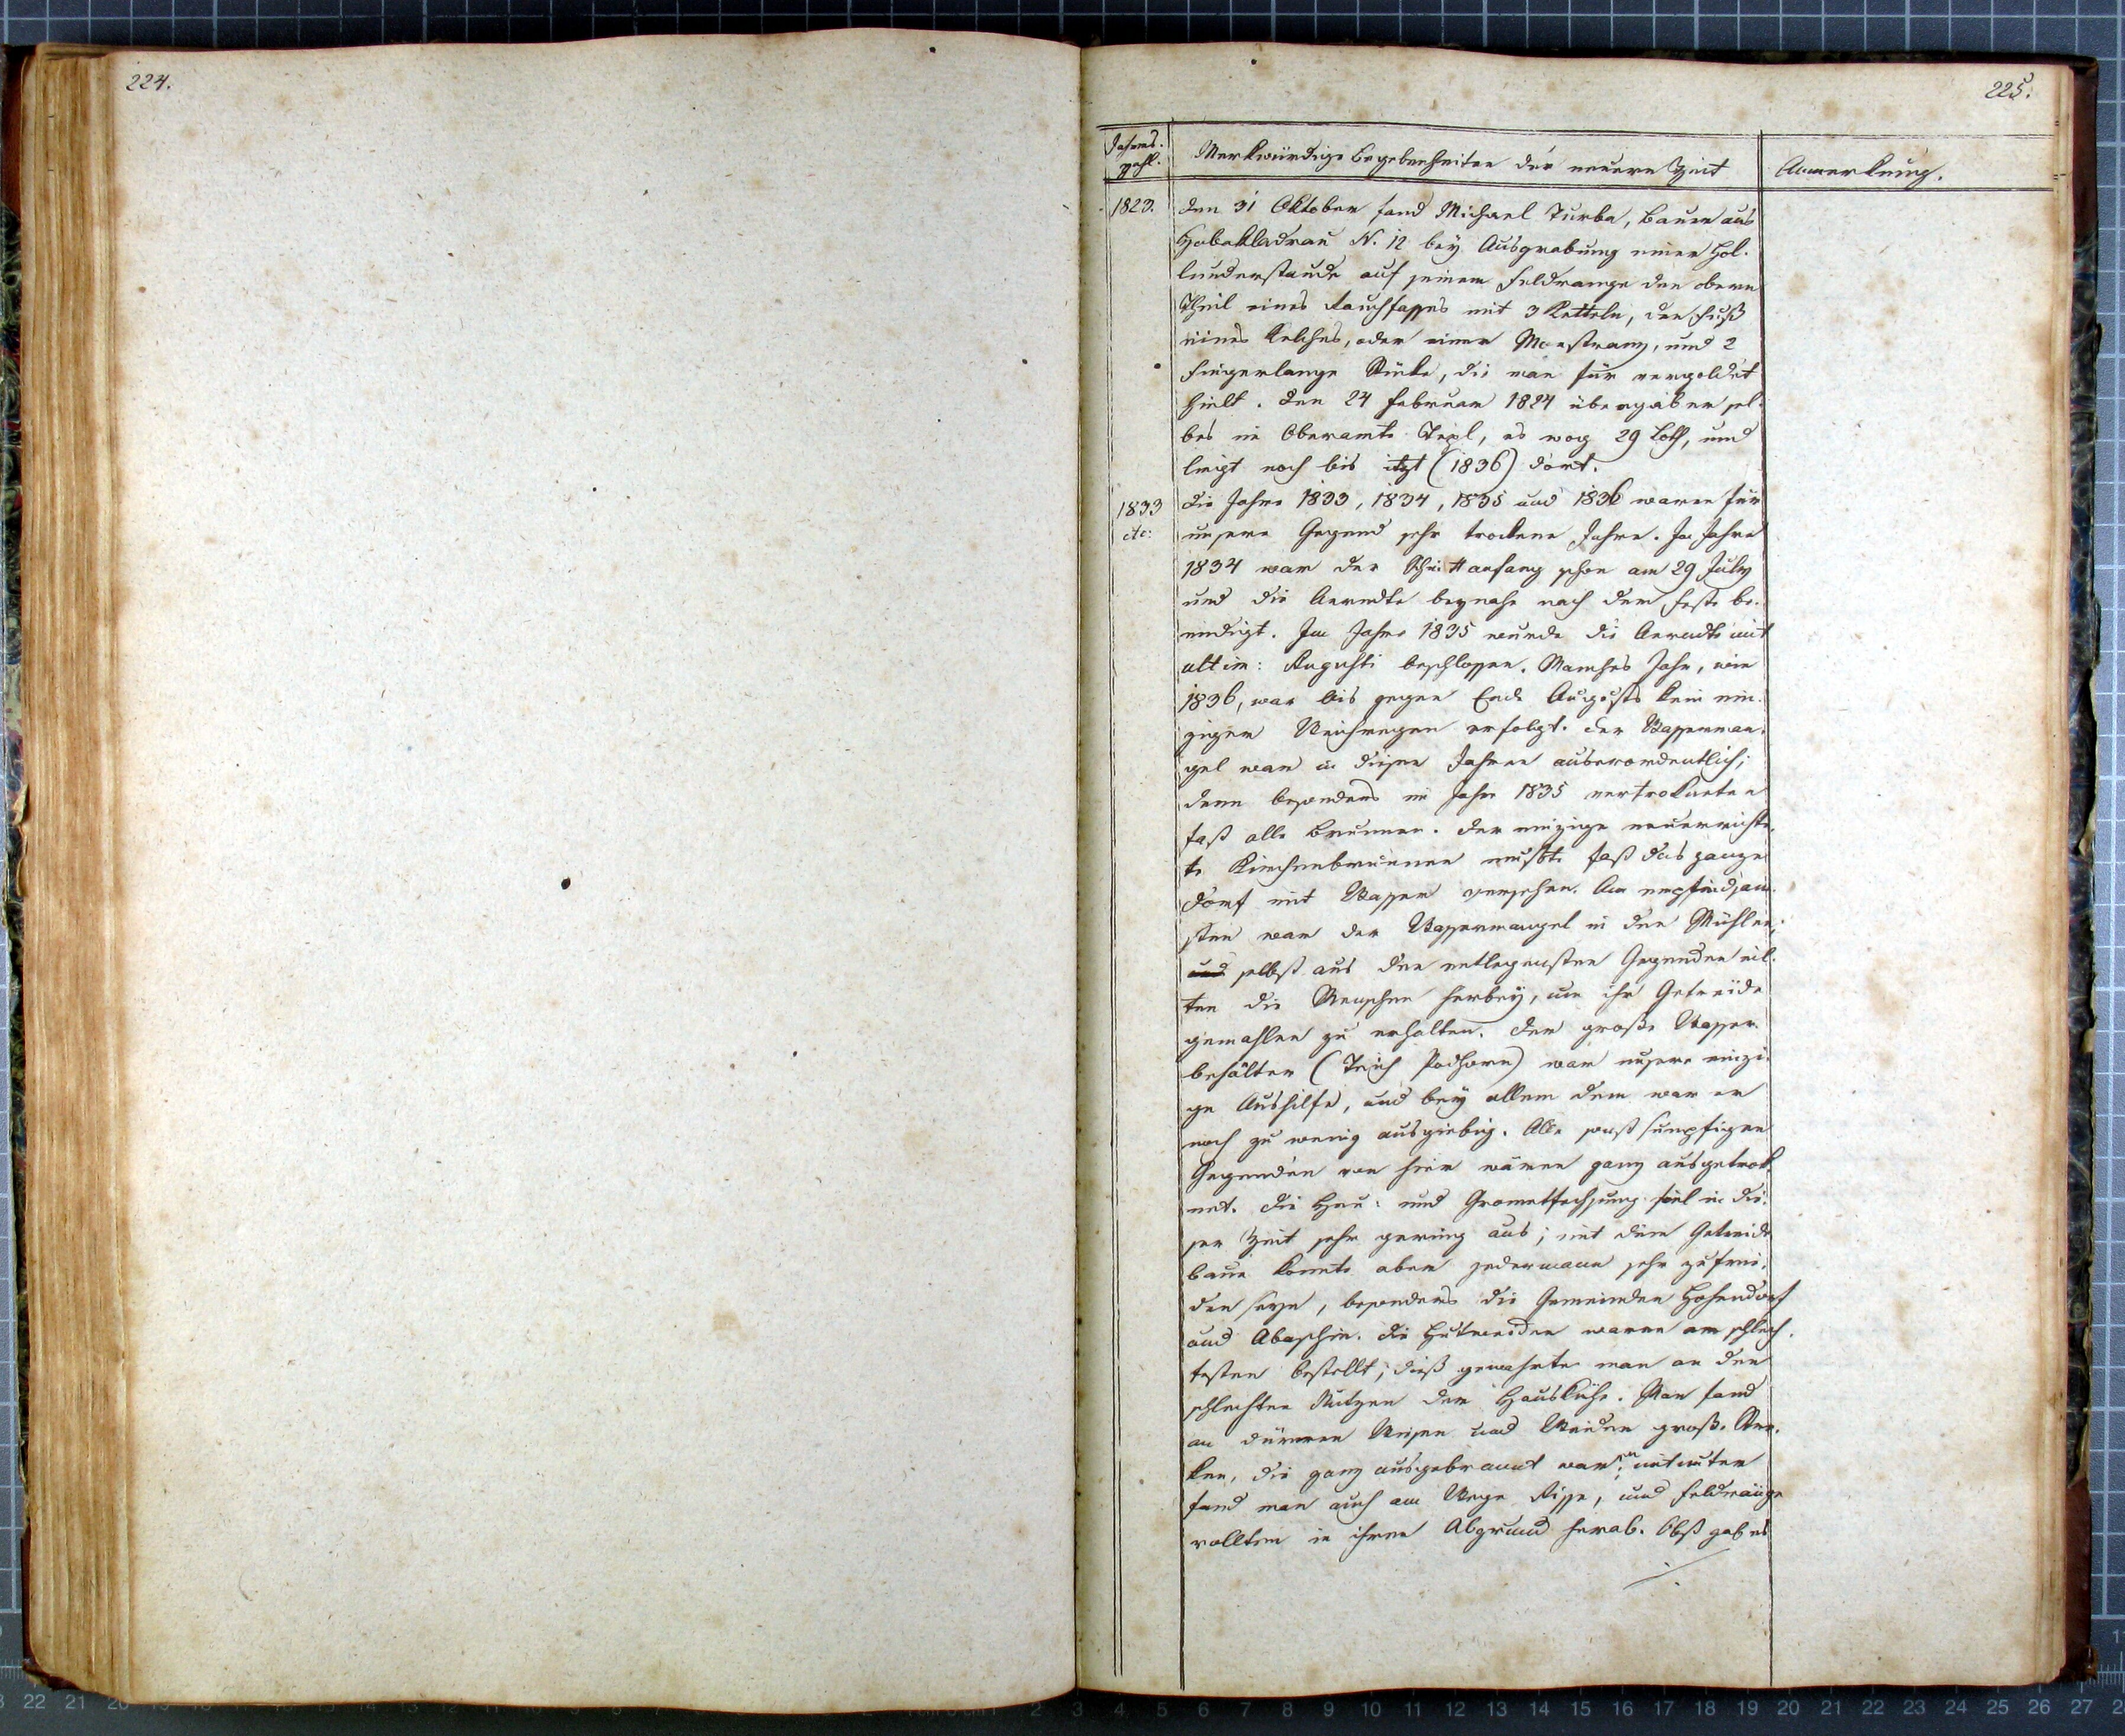 224.
225.
Jahres-
zahl.
Merkwürdige Begebenheiten der neuern Zeit
Anmerkung.
1823.
den 31 Oktober fand Michael Turba, Bauer aus
Habakladrau N. 12 bey Ausgrabung einer Hol-
lunderstaude auf seinem Feldrange den obern
Theil eines Rauchfasses mit 3 Ketteln, den Fuß
eines Kelches, oder einer Monstranz, und 2
fingerlange Stücke, die man für vergoldet
hielt. Den 24 Februar 1824 übergab er sel-
bes im Oberamte Tepl, es wog 29 Loth, und
liegt noch bis itzt (1836) dort.
1833
etc:
Die Jahre 1833, 1834, 1835 und 1836 waren für
unsere Gegend sehr trockene Jahre. Im Jahre
1834 war der Schnittanfang schon am 29 July
und die Aerndte beynahe nach dem Feste be-
endigt. Im Jahre 1835 wurde die Aerndte mit
ultim: Augusti beschlossen. Manches Jahr, wie
1836, war bis gegen Ende Augusts kein ein-
ziger Strichregen erfolgt. Der Wasserman-
gel war in diesen Jahren auserordentlich;
denn besonders im Jahre 1835 vertrockneten
fast alle Brunnen. Der einzige neuerrichte-
te Kirchenbrunnen mußte fast das ganze
Dorf mit Wasser versehen. Am empfindsam-
sten war der Wassermangel in den Mühlen;
selbst aus den entlegensten Gegenden eil-
ten die Menschen herbey, um ihr Getreide
gemahlen zu erhalten. Der große Wasser-
behälter (Teich Podhorn) war unsere einzi-
ge Aushilfe, und bey allem dem war er
noch zu wenig ausgiebig. Alle sonst sumpfigen
Gegenden von hier waren ganz ausgetrok-
net. Die Heu- und Grometfechsung fiel in die-
ser Zeit sehr gering aus; mit dem Getreide
baue konnte aber jedermann sehr zufrie-
den seyn, besonders die Gemeinden Hohendorf
und Abaschin. Die Hutweiden waren am schlech-
testen bestellt; dieß gewahrte man an den
schlechten Nutzen der Hauskühe. Man fand
an dürren Wiesen und Weiden große Stre-
ken, die ganz ausgebrannt waren; mitunter
fand man auch am Wege Risse, und Feldränge
rollten in ihren Abgrund herab. Obst gab es
./.